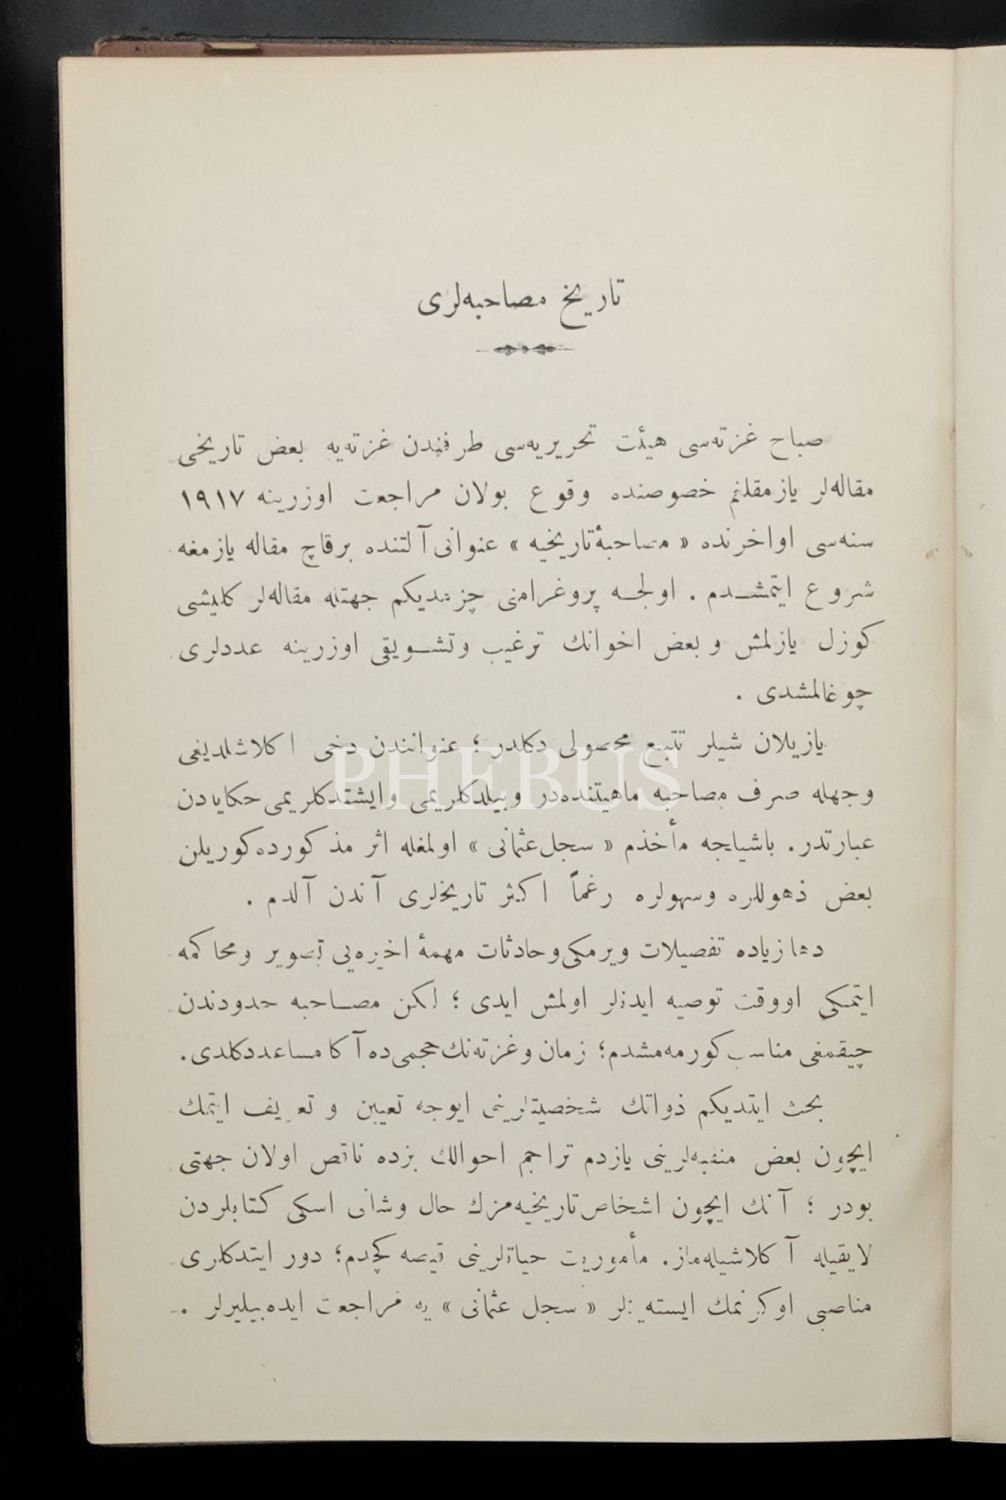 تاريخ مصاحبه‌لری
صباح غزته‌سی هيئت تحريريه‌سی طرفندن غزته‌يه بعض تاريخی
مقاله‌لر يازمقلغم خصوصنده وقوع بولان مراجعت اوزرينه ١٩١٧
سنه‌سی اواخرنده « مصاحبهٔ تاريخيه » عنوانی آلتنده برقاچ مقاله يازمغه
شروع ايتمشدم . اولجه پروغرامنی چزمديكم جهتله مقاله‌لر كليشی
كوزل يازلمش و بعض اخوانك ترغيب وتشويقی اوزرينه عددلری
چوغالمشدی .
يازيلان شيلر تتبع محصولی دكلدر ؛ عنوانندن دخی اكلاشلديغی
وجهله صرف مصاحبه ماهيتنده‌در وبيلدكلريمی وايشتدكلريمی حكايه‌دن
عبارتدر. باشليجه مأخذم « سجل عثمانی » اولمغله اثر مذكورده كوريلن
بعض ذهوللره وسهولره رغماً اكثر تاريخلری آندن آلدم .
دها زياده تفصيلات ويرمكی وحادثات مهمهٔ اخيره‌يی تصوير ومحاكمه
ايتمكی اووقت توصيه ايدنلر اولمش ايدی ؛ لكن مصاحبه حدودندن
چيقمغی مناسب كورمه‌مشدم ؛ زمان وغزته‌نك حجمی‌ده آكا مساعددكلدی.
بحث ايتديكم ذواتك شخصيتلرينی ايوجه تعيين و تعريف ايتمك
ايچون بعض منقبه‌لرينی يازدم تراجم احوالك بزده ناقص اولان جهتی
بودر ؛ آنك ايچون اشخاص تاريخيه‌مزك حال وشانی اسكی كتابلردن
لايقيله آكلاشيله‌ماز. مأموريت حياتلرينی قيصه كچدم؛ دور ايتدكلری
مناصبی اوكرنمك ايسته‌ينلر « سجل عثمانی » يه مراجعت ايده‌بيليرلر .
PHEBUS